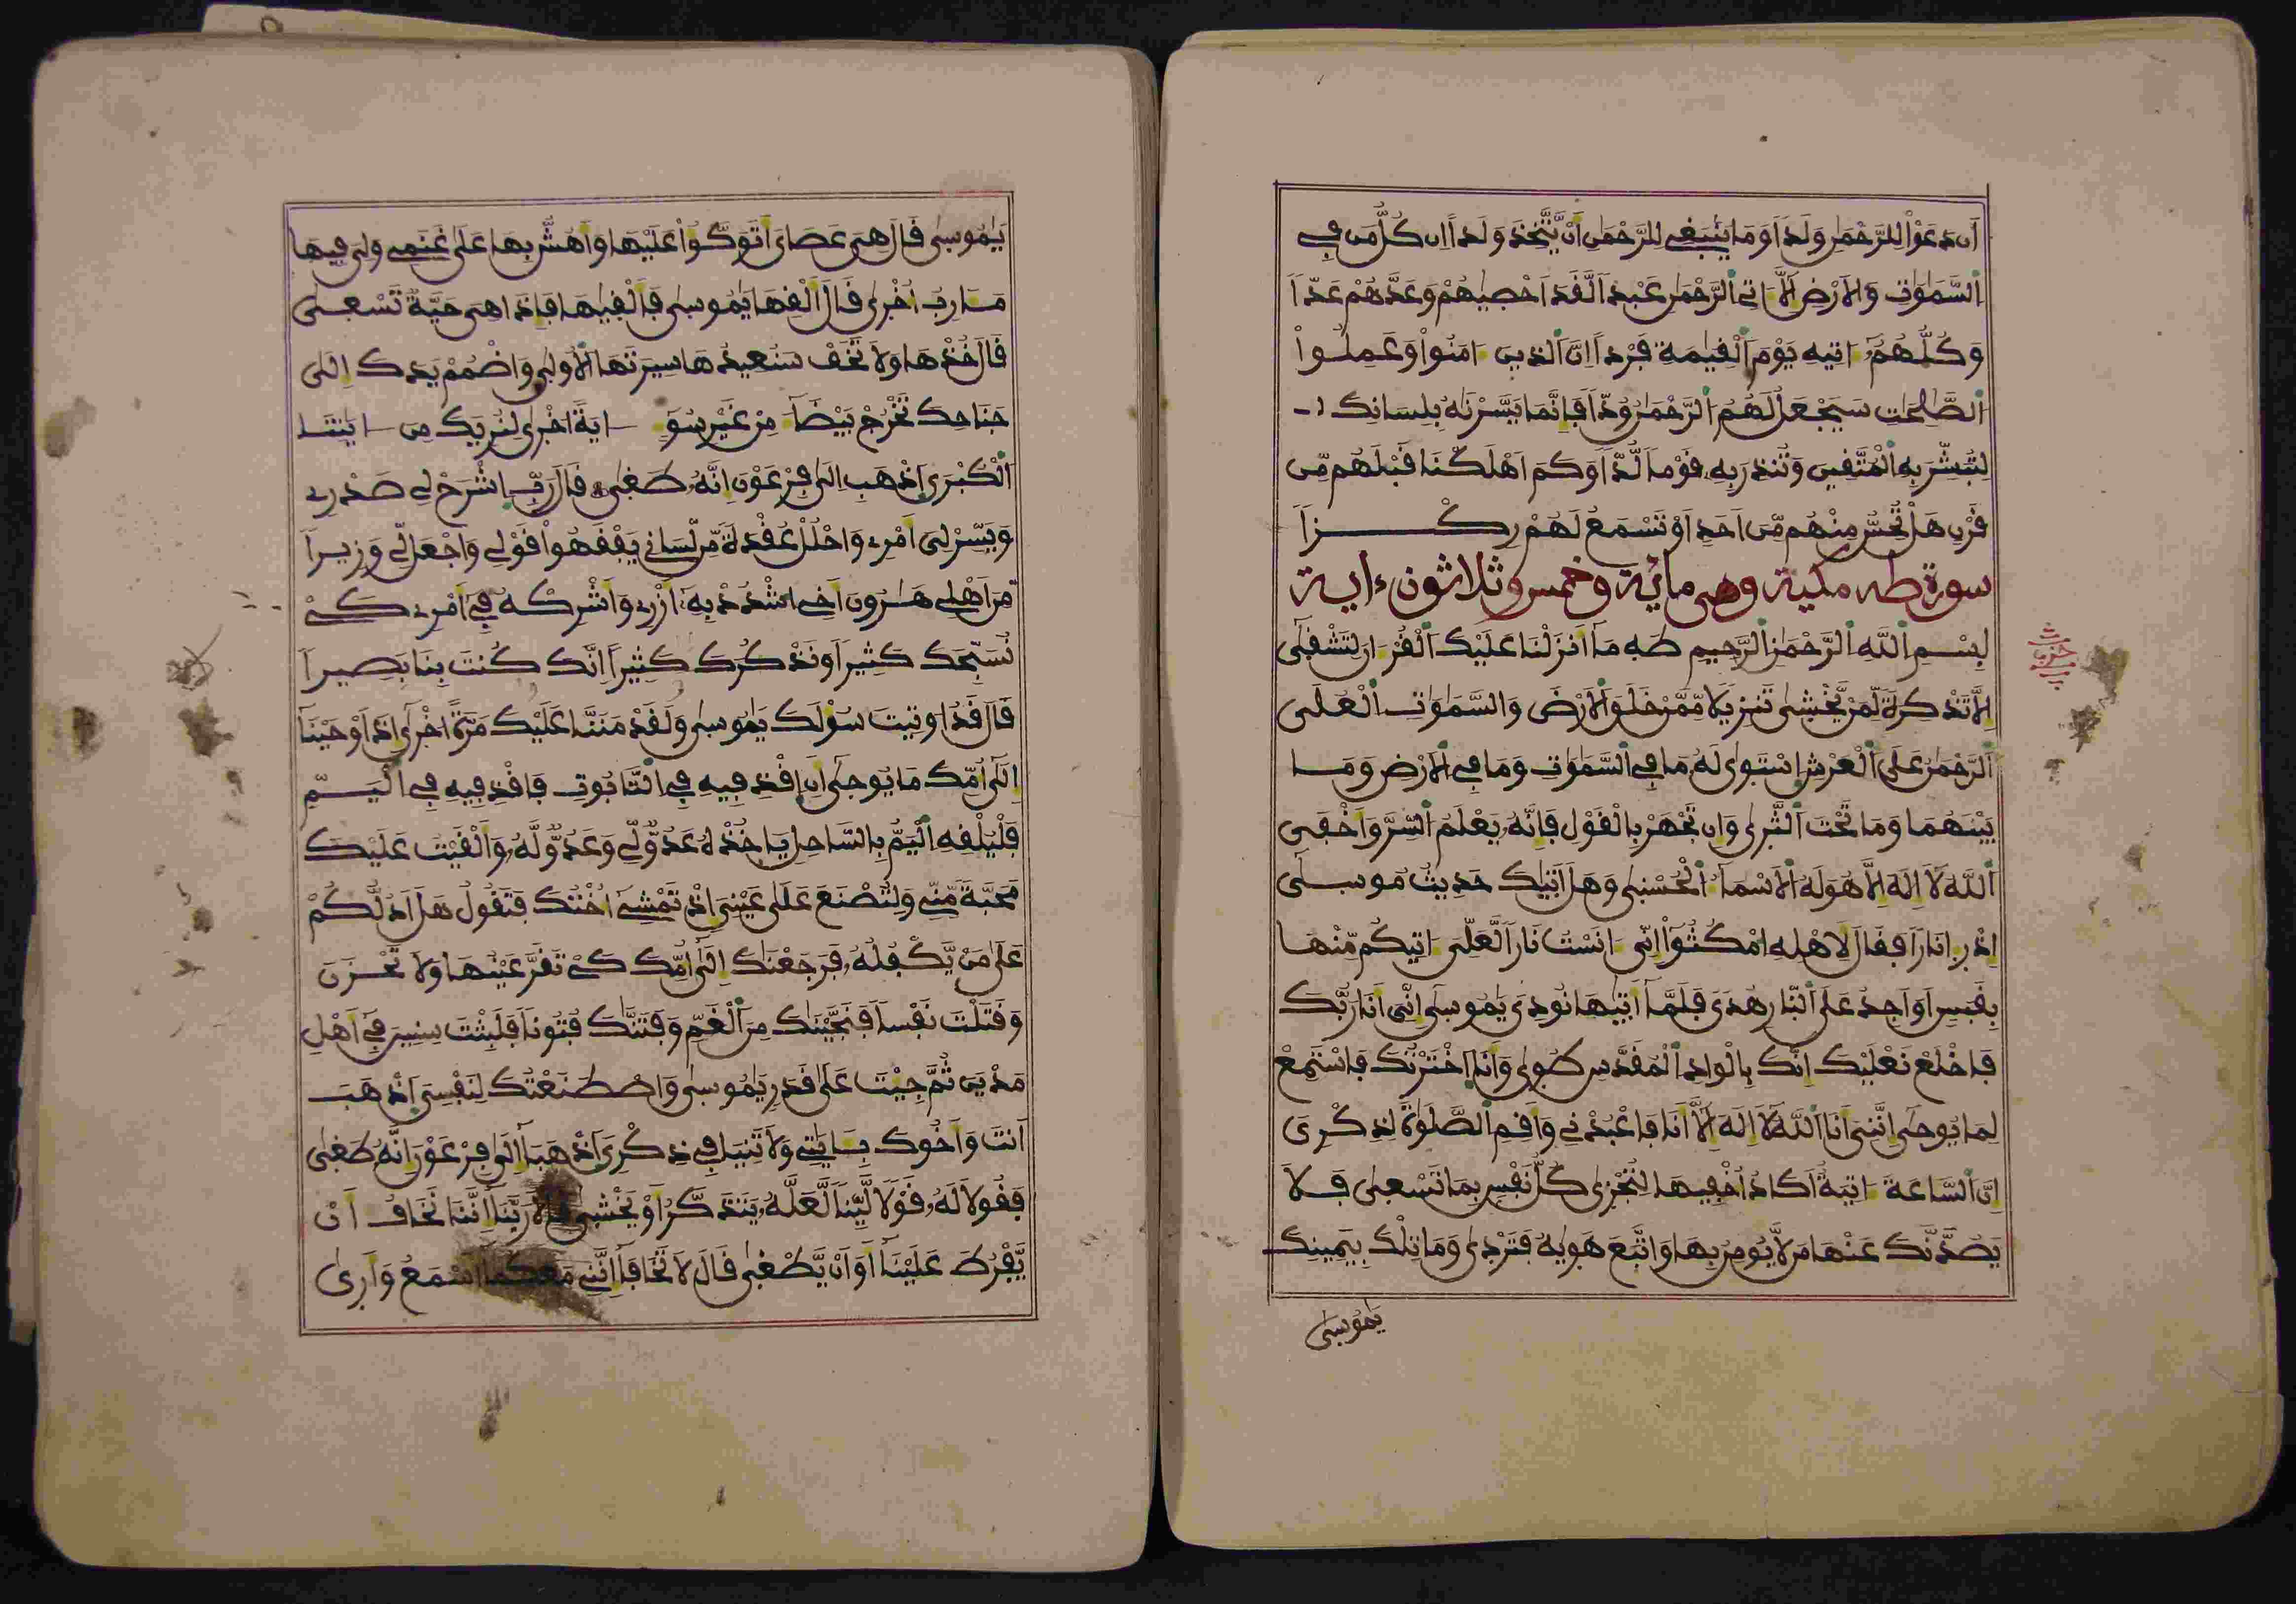 أَن دَعَوْاْ لِلرَّحْمَٰنِ وَلَدًا وَمَا يَنۢبَغِے لِلرَّحْمَٰنِ أَنْ يَّتَّخِذَ وَلَدًا إِن كُلُّ مَن فِے
اِ۬لسَّمَٰوَٰتِ وَالَارْضِ إِلَّآ ءَاتِے اِ۬لرَّحْمَٰنِ عَبْدًا لَّقَدَ اَحْصَيٰهُمْ وَعَدَّهُمْ عَدًّا
وَكُلُّهُمُۥٓ ءَاتِيهِ يَوْمَ اَ۬لْقِيَٰمَةِ فَرْدًا إِنَّ اَ۬لذِينَ ءَامَنُواْ وَعَمِلُواْ
اُ۬لصَّٰلِحَٰتِ سَيَجْعَلُ لَهُمُ اُ۬لرَّحْمَٰنُ وُدًّا فَإِنَّمَا يَسَّرْنَٰهُ بِلِسَانِكَ
لِتُبَشِّرَ بِهِ اِ۬لْمُتَّقِينَ وَتُنذِرَ بِهِۦ قَوْمًا لُّدًّا وَكَمَ اَهْلَكْنَا قَبْلَهُم مِّن
قَرْنٍ هَلْ تُحِسُّ مِنْهُم مِّنَ اَحَدٍ اَوْ تَسْمَعُ لَهُمْ رِكْزًا
سورة طه مكية وهي مائية وخمس وثلاثون ءاية
بِسْمِ اِ۬للَّهِ اِ۬لرَّحْمَٰنِ اِ۬لرَّحِيمِ طَهِ مَآ أَنزَلْنَا عَلَيْكَ اَ۬لْقُرْءَانَ لِتَشْقَىٰٓ
إِلَّا تَذْكِرَةً لِّمَنْ يَّخْشَىٰ تَنزِيلًا مِّمَّنْ خَلَقَ اَ۬لَارْضَ وَالسَّمَٰوَٰتِ اِ۬لْعُلَى
اَ۬لرَّحْمَٰنُ عَلَى اَ۬لْعَرْشِ اِ۪سْتَوَىٰ لَهُۥ مَا فِے اِ۬لسَّمَٰوَٰتِ وَمَا فِے اِ۬لَارْضِ وَمَا
بَيْنَهُمَا وَمَا تَحْتَ اَ۬لثَّرَىٰ وَإِن تَجْهَرْ بِالْقَوْلِ فَإِنَّهُۥ يَعْلَمُ اُ۬لسِّرَّ وَأَخْفَى
اَ۬للَّهُ لَآ إِلَٰهَ إِلَّا هُوَ لَهُ اُ۬لَاسْمَآءُ اُ۬لْحُسْنَىٰ وَهَلَ اَتَيٰكَ حَدِيثُ مُوسَىٰٓ
إِذْ رءَا نَارًا فَقَالَ لِأَهْلِهِ اِ۟مْكُثُوٓاْ إِنِّيَ ءَانَسْتُ نَارًا لَّعَلِّيَ ءَاتِيكُم مِّنْهَا
بِقَبَسٍ اَوَ اَجِدُ عَلَى اَ۬لنّٰارِ هُدًى فَلَمَّآ أَتَيٰهَا نُودِيَ يَٰمُوسَىٰٓ إِنِّيَ أَنَا رَبُّكَ
فَاخْلَعْ نَعْلَيْكَ إِنَّكَ بِالْوَادِ اِ۬لْمُقَدَّسِ طُوَىٰ وَأَنَا اَ۪خْتَرْتُكَ فَاسْتَمِعْ
لِمَا يُوحَىٰٓ إِنَّنِيَ أَنَا اَ۬للَّهُ لَآ إِلَٰهَ إِلَّآ أَنَا فَاعْبُدْنِے وَأَقِمِ اِ۬لصَّلَوٰةَ لِذِكْرِيَ
إِنَّ اَ۬لسَّاعَةَ ءَاتِيَةٌ اَكَادُ أُخْفِيهَا لِتُجْزَىٰ كُلُّ نَفْسٍ بِمَا تَسْعَىٰ فَلَا
يَصُدَّنَّكَ عَنْهَا مَن لَّا يُومِنُ بِهَا وَاتَّبَعَ هَوَيٰهُ فَتَرْدَىٰ وَمَا تِلْكَ بِيَمِينِكَ
يَٰمُوسَىٰ
حزب
يَٰمُوسَىٰ قَالَ هِيَ عَصَايَ أَتَوَكَّؤُاْ عَلَيْهَا وَأَهُشُّ بِهَا عَلَىٰ غَنَمِے وَلِيَ فِيهَا
مَـَٔارِبُ أُخْرَىٰ قَالَ أَلْقِهَا يَٰمُوسَىٰ فَأَلْقَيٰهَا فَإِذَا هِيَ حَيَّةٌ تَسْعَىٰ
قَالَ خُذْهَا وَلَا تَخَفْ سَنُعِيدُهَا سِيرَتَهَا اَ۬لُاولَىٰ وَاضْمُمْ يَدَكَ إِلَىٰ
جَنَاحِكَ تَخْرُجْ بَيْضَآءَ مِنْ غَيْرِ سُوٓءٍ ـ ايَةً اخْرَىٰ لِنُرِيَكَ مِنَ ـ ايَٰتِنَا
اَ۬لْكُبْرَى اَ۪ذْهَبِ اِلَىٰ فِرْعَوْنَ إِنَّهُۥ طَغَىٰ قَالَ رَبِّ اِ۪شْرَحْ لِے صَدْرِے
وَيَسِّرْ لِيَ أَمْرِے وَاحْلُلْ عُقْدَةً مِّن لِّسَانِے يَفْقَهُواْ قَوْلِے وَاجْعَل لِّے وَزِيرًا
مِّنَ اَهْلِے هَٰرُونَ أَخِے اِ۟شْدُدْ بِهِۦٓ أَزْرِے وَأَشْرِكْهُ فِےٓ أَمْرِے كَےْ
نُسَبِّحَكَ كَثِيرًا وَنَذْكُرَكَ كَثِيرًا إِنَّكَ كُنتَ بِنَا بَصِيرًا
قَالَ قَدُ اوتِيتَ سُؤْلَكَ يَٰمُوسَىٰ وَلَقَدْ مَنَنَّا عَلَيْكَ مَرَّةً اخْرَىٰٓ إِذَ اَوْحَيْنَآ
إِلَىٰٓ أُمِّكَ مَا يُوحَىٰٓ أَنِ اِ۪قْذِفِيهِ فِے اِ۬لتَّابُوتِ فَاقْذِفِيهِ فِے اِ۬لْيَمِّ
فَلْيُلْقِهِ اِ۬لْيَمُّ بِالسَّاحِلِ يَاخُذْهُ عَدُوٌّ لِّے وَعَدُوٌّ لَّهُۥ وَأَلْقَيْتُ عَلَيْكَ
مَحَبَّةً مِّنِّے وَلِتُصْنَعَ عَلَىٰ عَيْنِيَ إِذْ تَمْشِےٓ أُخْتُكَ فَتَقُولُ هَلَ اَدُلُّكُمْ
عَلَىٰ مَنْ يَّكْفُلُهُۥ فَرَجَعْنَٰكَ إِلَىٰٓ أُمِّكَ كَےْ تَقَرَّ عَيْنُهَا وَلَا تَحْزَنَ
وَقَتَلْتَ نَفْسًا فَنَجَّيْنَٰكَ مِنَ اَ۬لْغَمِّ وَفَتَنَّٰكَ فُتُونًا فَلَبِثْتَ سِنِينَ فِےٓ أَهْلِ
مَدْيَنَ ثُمَّ جِئْتَ عَلَىٰ قَدَرٍ يَٰمُوسَىٰ وَاصْطَنَعْتُكَ لِنَفْسِيَ اَ۪ذْهَبَ
اَنتَ وَأَخُوكَ بِـَٔايَٰتِے وَلَا تَنِيَا فِے ذِكْرِيَ اَ۪ذْهَبَآ إِلَىٰ فِرْعَوْنَ إِنَّهُۥ طَغَىٰ
فَقُولَا لَهُۥ قَوْلًا لَّيِّنًا لَّعَلَّهُۥ يَتَذَكَّرُ أَوْ يَخْشَىٰ قَالَا رَبَّنَآ إِنَّنَا نَخَافُ أَنْ
يَّفْرُطَ عَلَيْنَآ أَوَ اَنْ يَّطْغَىٰ قَالَ لَا تَخَافَآ إِنَّنِے مَعَكُمَآ أَسْمَعُ وَأَرَىٰ